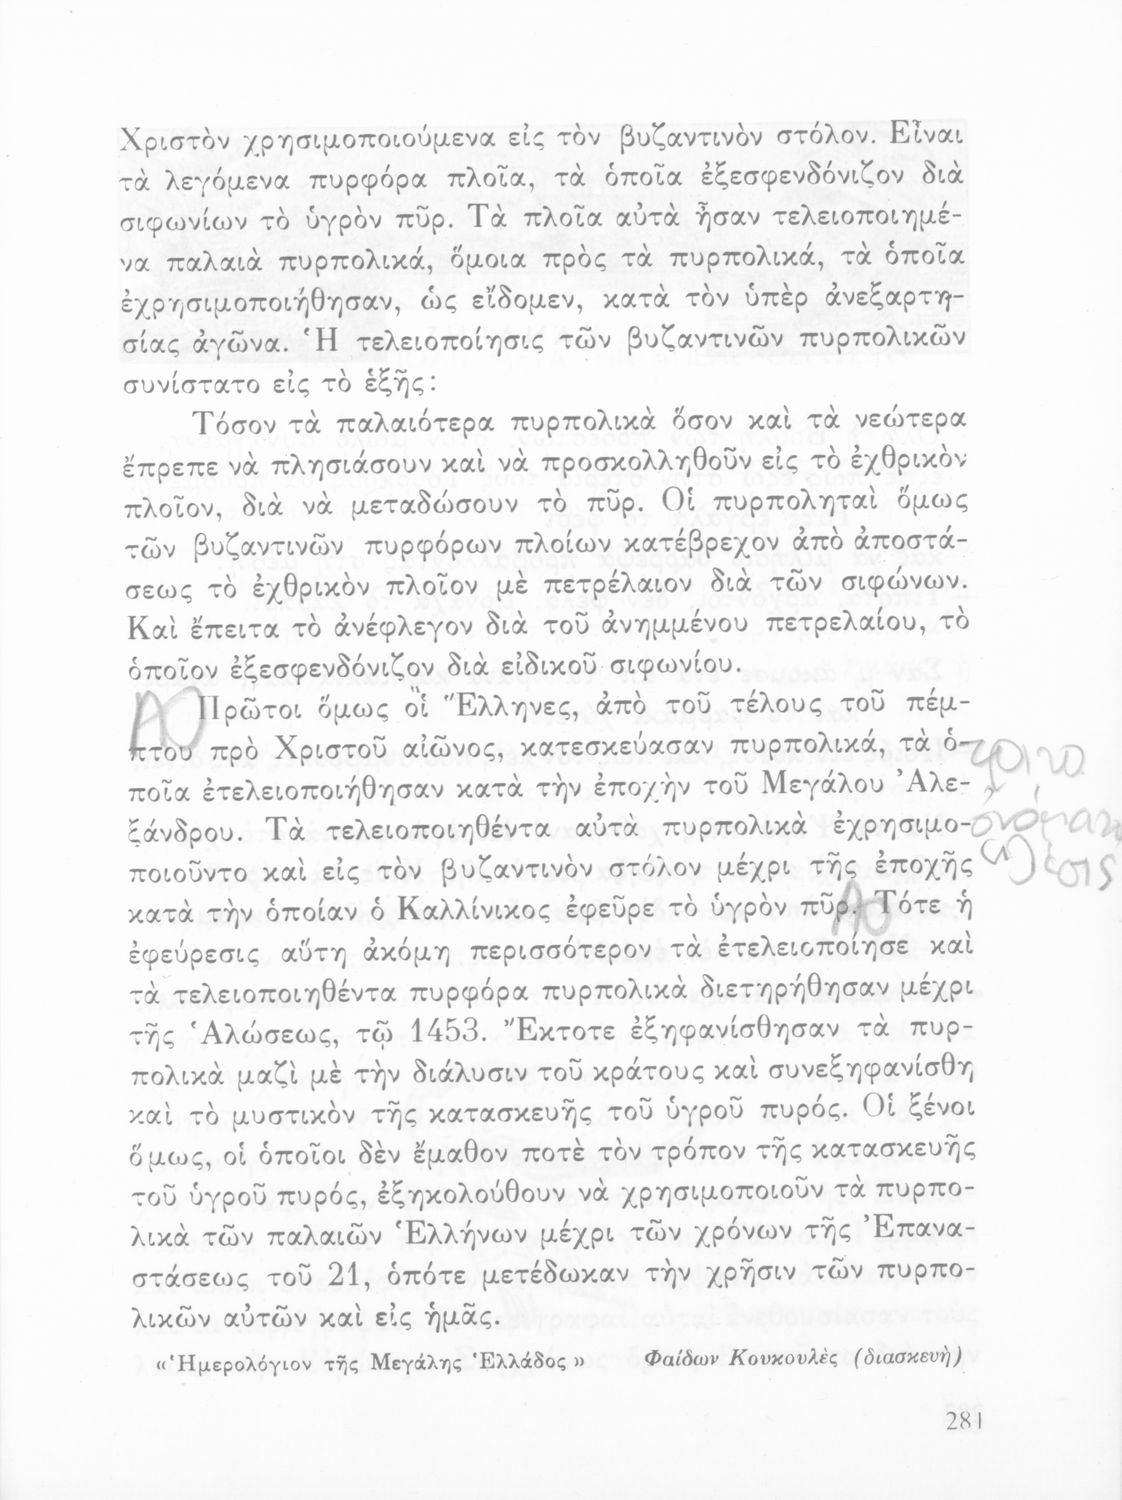 Χριστὸν χρησιμοποιούμενα εἰς τὸν βυζαντινὸν στόλον. Εἶναι
τὰ λεγόμενα πυρφόρα πλοῖα, τὰ ὁποῖα ἐξεσφενδόνιζον διὰ
σιφωνίων τὸ ὑγρὸν πῦρ. Τὰ πλοῖα αὐτὰ ἦσαν τελειοποιημέ-
να παλαιὰ πυρπολικά, ὅμοια πρὸς τὰ πυρπολικά, τὰ ὁποῖα
ἐχρησιμοποιήθησαν, ὡς εἴδομεν, κατὰ τὸν ὑπὲρ ἀνεξαρτη-
σίας ἀγῶνα. Ἡ τελειοποίησις τῶν βυζαντινῶν πυρπολικῶν
συνίστατο εἰς τὸ ἑξῆς:
Τόσον τὰ παλαιότερα πυρπολικὰ ὅσον καὶ τὰ νεώτερα
ἔπρεπε νὰ πλησιάσουν καὶ νὰ προσκολληθοῦν εἰς τὸ ἐχθρικὸν
πλοῖον, διὰ νὰ μεταδώσουν τὸ πῦρ. Οἱ πυρποληταὶ ὅμως
τῶν βυζαντινῶν πυρφόρων πλοίων κατέβρεχον ἀπὸ ἀποστά-
σεως τὸ ἐχθρικὸν πλοῖον μὲ πετρέλαιον διὰ τῶν σιφώνων.
Καὶ ἔπειτα τὸ ἀνέφλεγον διὰ τοῦ ἀνημμένου πετρελαίου, τὸ
ὁποῖον ἐξεσφενδόνιζον διὰ εἰδικοῦ σιφωνίου.
Πρῶτοι ὅμως οἱ Ἕλληνες, ἀπὸ τοῦ τέλους τοῦ πέμ-
πτου πρὸ Χριστοῦ αἰῶνος, κατεσκεύασαν πυρπολικά, τὰ ὁ-
ποῖα ἐτελειοποιήθησαν κατὰ τὴν ἐποχὴν τοῦ Μεγάλου Ἀλε-
ξάνδρου. Τὰ τελειοποιηθέντα αὐτὰ πυρπολικὰ ἐχρησιμο-
ποιοῦντο καὶ εἰς τὸν βυζαντινὸν στόλον μέχρι τῆς ἐποχῆς
κατὰ τὴν ὁποίαν ὁ Καλλίνικος ἐφεῦρε τὸ ὑγρὸν πῦρ. Τότε ἡ
ἐφεύρεσις αὕτη ἀκόμη περισσότερον τὰ ἐτελειοποίησε καὶ
τὰ τελειοποιηθέντα πυρφόρα πυρπολικὰ διετηρήθησαν μέχρι
τῆς Ἁλώσεως, τῷ 1453. Ἔκτοτε ἐξηφανίσθησαν τὰ πυρ-
πολικὰ μαζὶ μὲ τὴν διάλυσιν τοῦ κράτους καὶ συνεξηφανίσθη
καὶ τὸ μυστικὸν τῆς κατασκευῆς τοῦ ὑγροῦ πυρός. Οἱ ξένοι
ὅμως, οἱ ὁποῖοι δὲν ἔμαθον ποτὲ τὸν τρόπον τῆς κατασκευῆς
τοῦ ὑγροῦ πυρός, ἐξηκολούθουν νὰ χρησιμοποιοῦν τὰ πυρπο-
λικὰ τῶν παλαιῶν Ἑλλήνων μέχρι τῶν χρόνων τῆς Ἐπανα-
στάσεως τοῦ 21, ὁπότε μετέδωκαν τὴν χρῆσιν τῶν πυρπο-
λικῶν αὐτῶν καὶ εἰς ἡμᾶς.
«Ἡμερολόγιον τῆς Μεγάλης Ἑλλάδος» Φαίδων Κουκουλὲς (διασκευὴ)
281